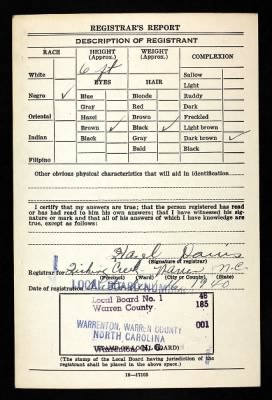 REGISTRAR'S REPORT
DESCRIPTION OF REGISTRANT
RACE HEIGHT (Approx.) WEIGHT (Approx.) COMPLEXION
White 6 ft Sallow
EYES HAIR Light
Negro ✓ Blue Blonde Ruddy
Gray Red Dark
Oriental Hazel Brown Freckled
Brown ✓ Black ✓ Light brown
Indian Black Gray Dark brown ✓
Bald Black
Filipino
Other obvious physical characteristics that will aid in identification
I certify that my answers are true; that the person registered has read or has had read to him his own answers; that I have witnessed his signature or mark and that all of his answers of which I have knowledge are true, except as follows:
Davis
(Signature of registrar)
Registrar for Fishing Creek Warren N.C.
(Precinct) (Ward) (City or County) (State)
Date of registration 16 1940
LOCAL BOARD NUMBER
Local Board No. 1 46
Warren County 185
WARRENTON, WARREN COUNTY 001
NORTH CAROLINA
(STAMP OF LOCAL BOARD)
Warrenton, N. C.
(The stamp of the Local Board having jurisdiction of the registrant shall be placed in the above space.)
16—17105